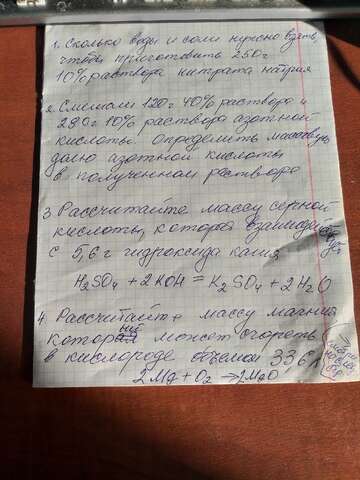 1. Сколько воды и соли нужно взять,
чтобы приготовить 250 г
10% раствора нитрата натрия
2. Смешали 120 г 40% раствора и
280 г 10% раствора азотной
кислоты. Определить массовую
долю азотной кислоты
в полученном растворе
3. Рассчитайте массу серной
кислоты, которая взаимодейству
с 5,6 г гидроксида калия
H2SO4 + 2KOH = K2SO4 + 2H2O
4. Рассчитайте массу магния
который может сгореть
в кислороде объёмом 33,6 л
2Mg + O2 → 2MgO